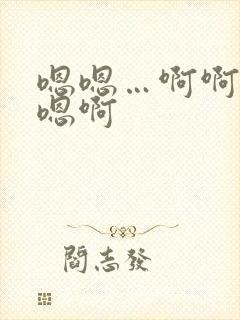 嗯嗯…啊啊
嗯啊
閻志發